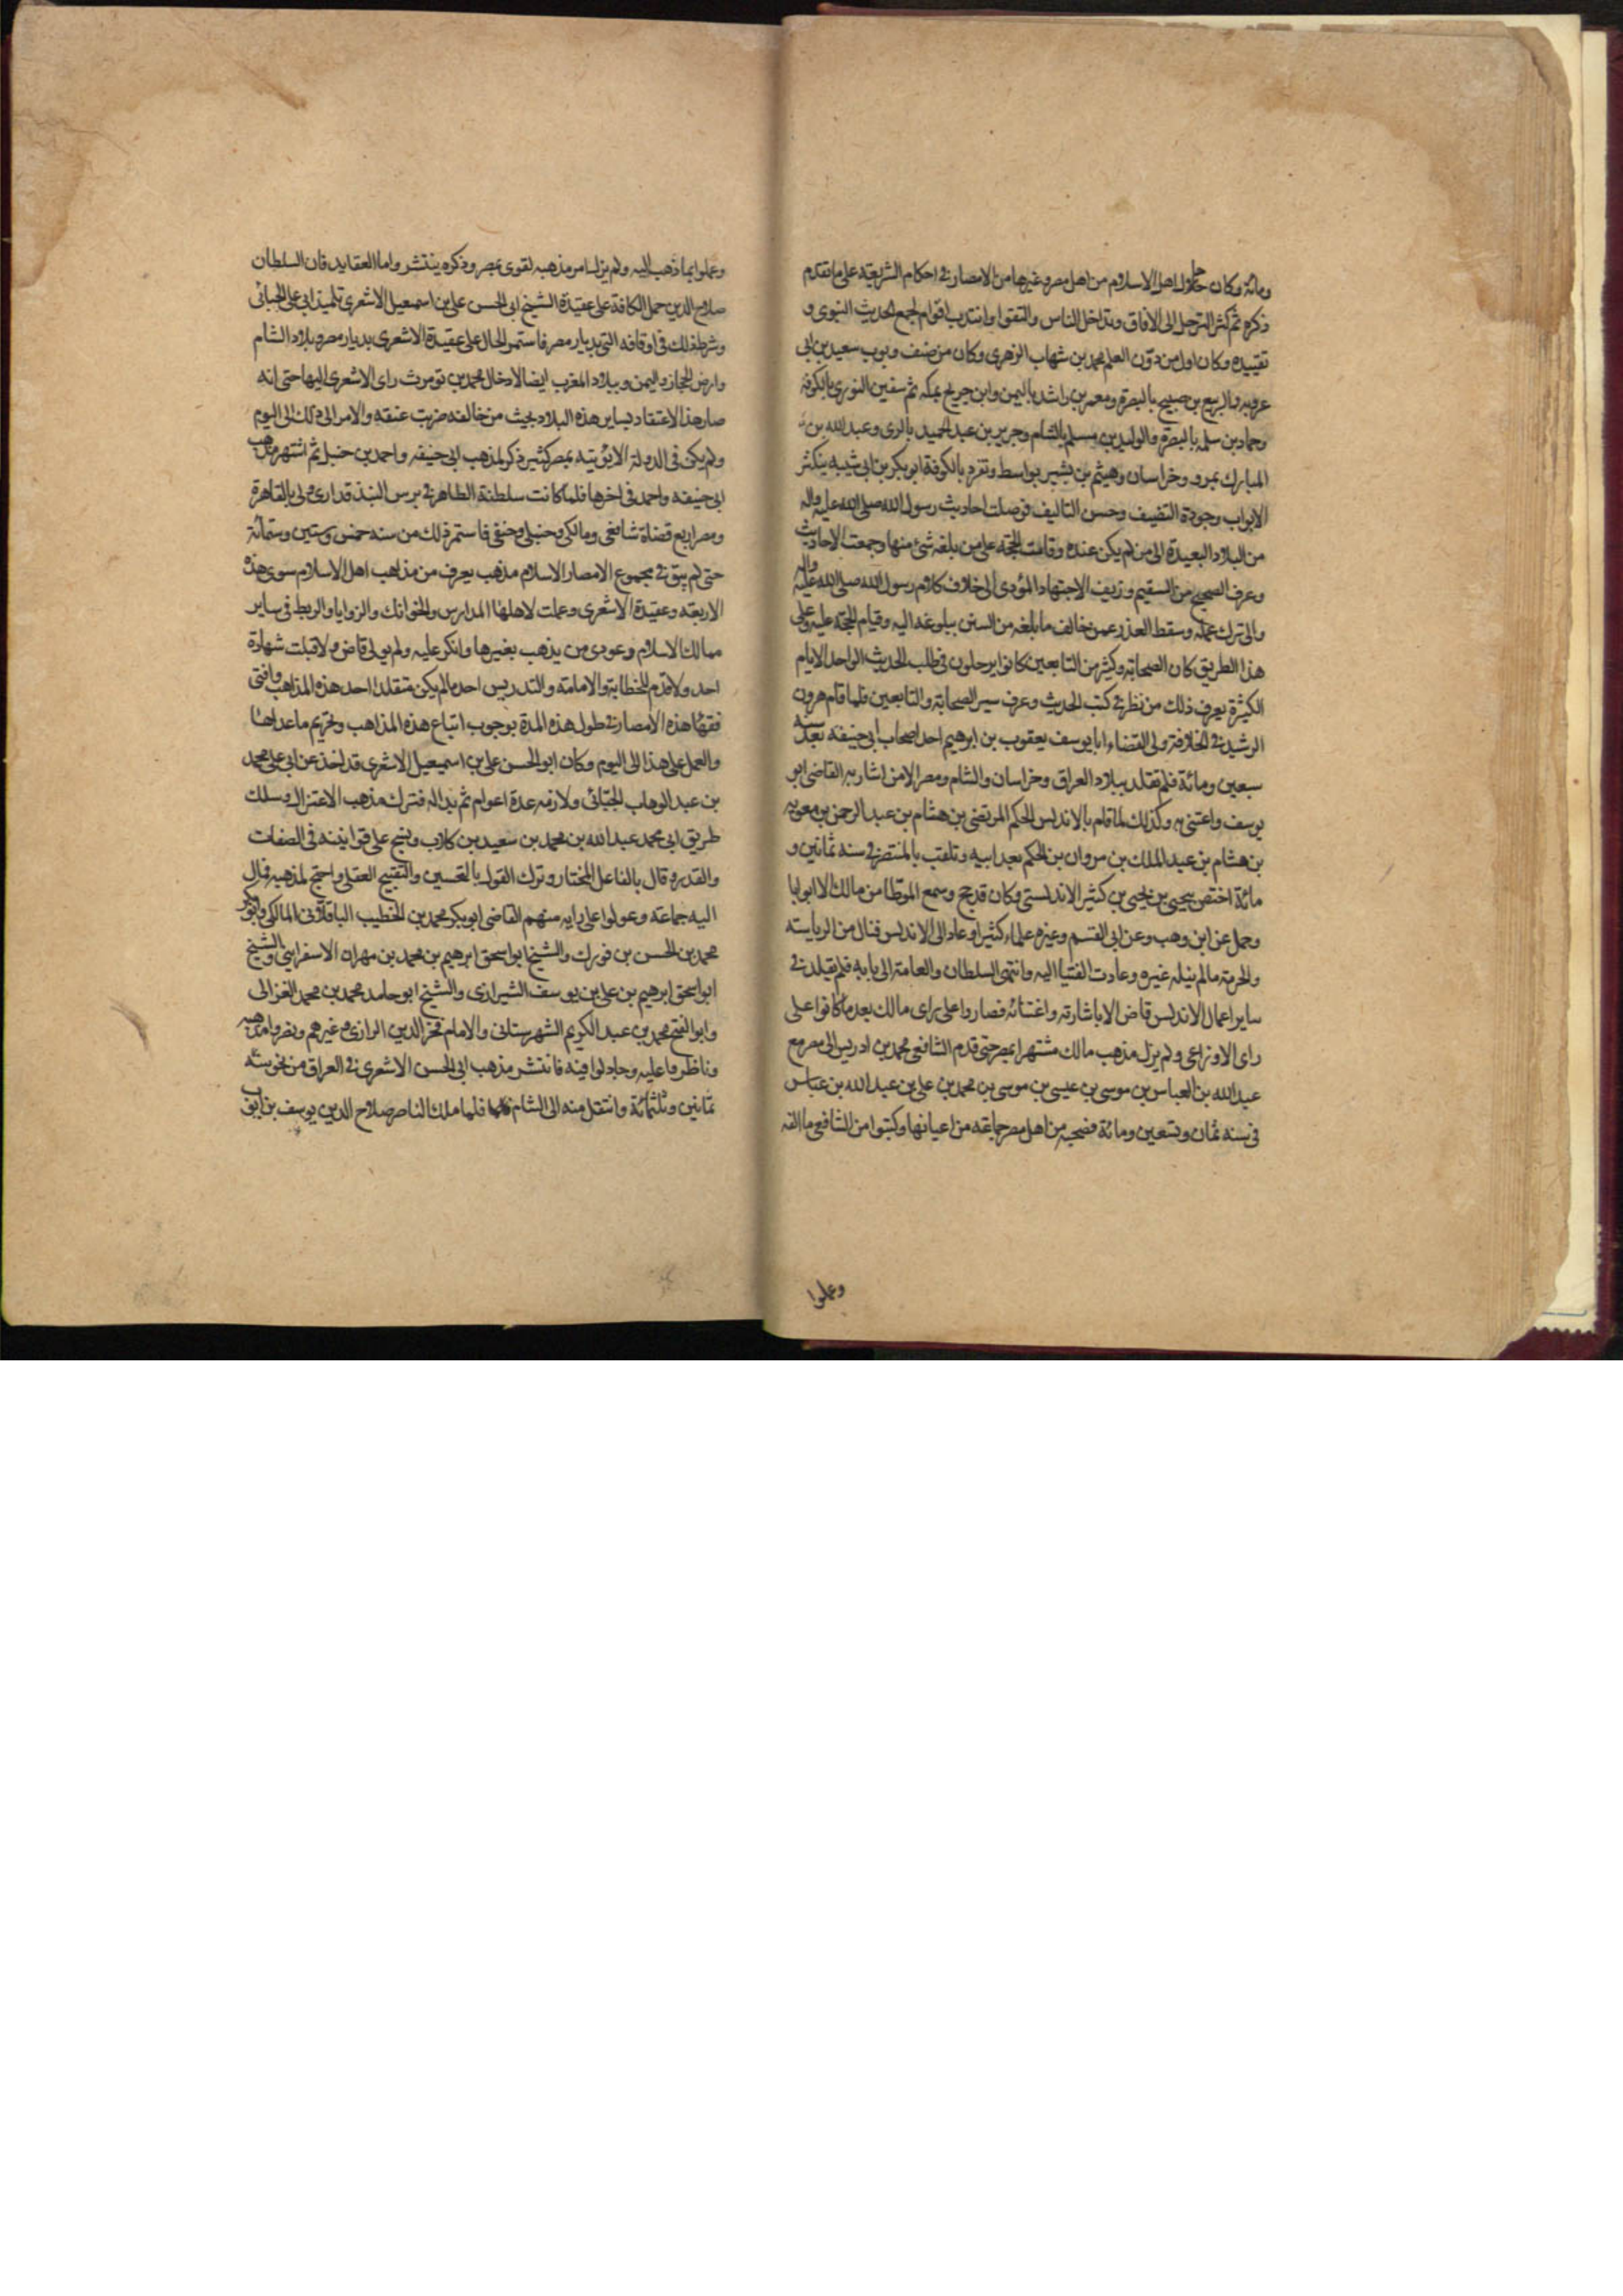 ومائة وكان حال اهل الاسلام من اهل مصر وغيرها من الامصار في احكام الشريعة على ما تقدم
ذكره ثم كثر الترحل الى الافاق وتداخل الناس والتقوا وانتدب اقوام لجمع الحديث النبوى و
تقييده وكان اول من دوّن العلم محمد بن شهاب الزهرى وكان من صنف وبوب سعيد بن ابى
عروبه والربيع بن صبيح بالبصرة ومعمر بن راشد باليمن وابن جريح بمكه ثم سفين الثورى بالكوفة
وحماد بن سلمه بالبصرة والوليد بن مسلم بالشام وجرير بن عبد الحميد بالرى وعبد الله بن
المبارك بمرو وخراسان وهيثم بن بشير بواسط وتفرد بالكوفة ابو بكر بن ابى شيبه بتكثر
الابواب وجودة التصنيف وحسن التاليف فوصلت احاديث رسول الله صلى الله عليه واله
من البلاد البعيدة الى من لم يكن عنده وقامت الحجة على من بلغه شئ منها وجمعت الاحاديث
وعرف الصحيح من السقيم وزيف الاجتهاد المؤدى الى خلاف كلام رسول الله صلى الله عليه واله
والى ترك عمله وسقط العذر عمن خالف ما بلغه من السنن ببلوغه اليه وقيام الحجة عليه وعلى
هذا الطريق كان الصحابة وكثير من التابعين كانوا يرحلون فى طلب الحديث الواحد الايام
الكثيرة يعرف ذلك من نظر في كتب الحديث وعرف سير الصحابة والتابعين فلما قام هرون
الرشيد في الخلافة ولى القضاء ابا يوسف يعقوب بن ابرهيم احد اصحاب ابى حنيفه بعد سنه
سبعين ومائة فلم تقلد ببلاد العراق وخراسان والشام ومصر الا من اشار به القاضى ابو
يوسف واعتنى به وكذلك لما قام بالاندلس الحكم المرتضى بن هشام بن عبد الرحمن بن معويه
بن هشام بن عبد الملك بن مروان بن الحكم بعد ابيه وتلقب بالمنتصر في سنه ثمانين و
مائة اختص بيحيى بن يحيى بن كثير الاندلستى وكان قد حج وسمع الموطا من مالك الا ابوابا
وحمل عن ابن وهب وعن ابى القسم وغيره علماء كثيرا وعاد الى الاندلس فنال من الرياسته
والحرمة ما لم ينله غيره وعادت الفتيا اليه وانتهى السلطان والعامة الى بابه فلم يقلد في
ساير اعمال الاندلس قاض الا باشارته واعتنائه فصاروا على راى مالك بعد ما كانوا على
راى الاوزاعى ولم يزل مذهب مالك مشتهرا بمصر حتى قدم الشافعى محمد بن ادريس الى مصر مع
عبد الله بن العباس بن موسى بن عيسى بن موسى بن محمد بن على بن عبد الله بن عباس
فى سنه ثمان وتسعين ومائة فصحبه من اهل مصر جماعة من اعيانها وكتبوا من الشافعى ما الفه
وعملوا
وعملوا بما ذهب اليه ولم يزل امر مذهبه لقوى بمصر وذكره ينتشر واما العقايد فان السلطان
صلاح الدين حمل الكافة على عقيدة الشيخ ابى الحسن على بن اسمعيل الاشعرى تلميذ ابى على الجبائى
وشرط ذلك فى اوقافه التى بديار مصر فاستمر الحال على عقيدة الاشعرى بديار مصر وبلاد الشام
وارض الحجاز واليمن وببلاد المغرب ايضا لادخال محمد بن تومرت راى الاشعرى اليها حتى انه
صار هذا الاعتقاد بساير هذه البلاد بحيث من خالفه ضربت عنقه والامر الى ذلك الى اليوم
ولم يكن فى الدولة الايوبيه بمصر كثير ذكر لمذهب ابى حنيفه واحمد بن حنبل ثم اشتهر مذهب
ابى حنيفه واحمد فى اخرها فلما كانت سلطنة الظاهر في برس البندقدارى ولى بالقاهرة
ومصر اربع قضاة شافعى ومالكى وحنبلى وحنفى فاستمر ذلك من سنه خمس وستين وستمائة
حتى لم يبق في مجموع الامصار الاسلام مذهب يعرف من مذاهب اهل الاسلام سوى هذه
الاربعة وعقيدة الاشعرى وعملت لاهلها المدارس والخوانك والزوايا والربط فى ساير
ممالك الاسلام وعودى من يذهب بغيرها وانكر عليه ولم يولى قاض ولا قبلت شهادة
احد ولا قدّم للخطابة والامامة والتدريس احد ما لم يكن متقلدا احد هذه المذاهب وافتى
فقهاء هذه الامصار في طول هذه المدة بوجوب اتباع هذه المذاهب وتحريم ما عداها
والعمل على هذا الى اليوم وكان ابو الحسن على بن اسمعيل الاشعرى قد اخذ عن ابى على محمد
بن عبد الوهاب الجبّائى ولازمه عدة اعوام ثم بدا له فترك مذهب الاعتزال وسلك
طريق ابى محمد عبد الله بن محمد بن سعيد بن كلاب ونسج على قوانينه فى الصفات
والقدره قال بالفاعل المختار وترك القول بالتحسين والتقبيح العقلى واحتج لمذهبه فمال
اليه جماعة وعولوا على رايه منهم القاضى ابو بكر محمد بن الخطيب الباقلانى المالكى وابو بكر
محمد بن الحسن بن فورك والشيخ ابو اسحق ابرهيم بن محمد بن مهران الاسفراينى والشيخ
ابو اسحق ابرهيم بن على بن يوسف الشيرازى والشيخ ابو حامد محمد بن محمد الغزالى
وابو الفتح محمد بن عبد الكريم الشهرستانى والامام فخر الدين الرازى وغيرهم ونصروا مذهبه
وناظروا عليه وجادلوا فيه فانتشر مذهب ابى الحسن الاشعرى في العراق من نحو سنه
ثمانين وثلثمائة وانتقل منه الى الشام فلما ملك الناصر صلاح الدين يوسف بن ايوب